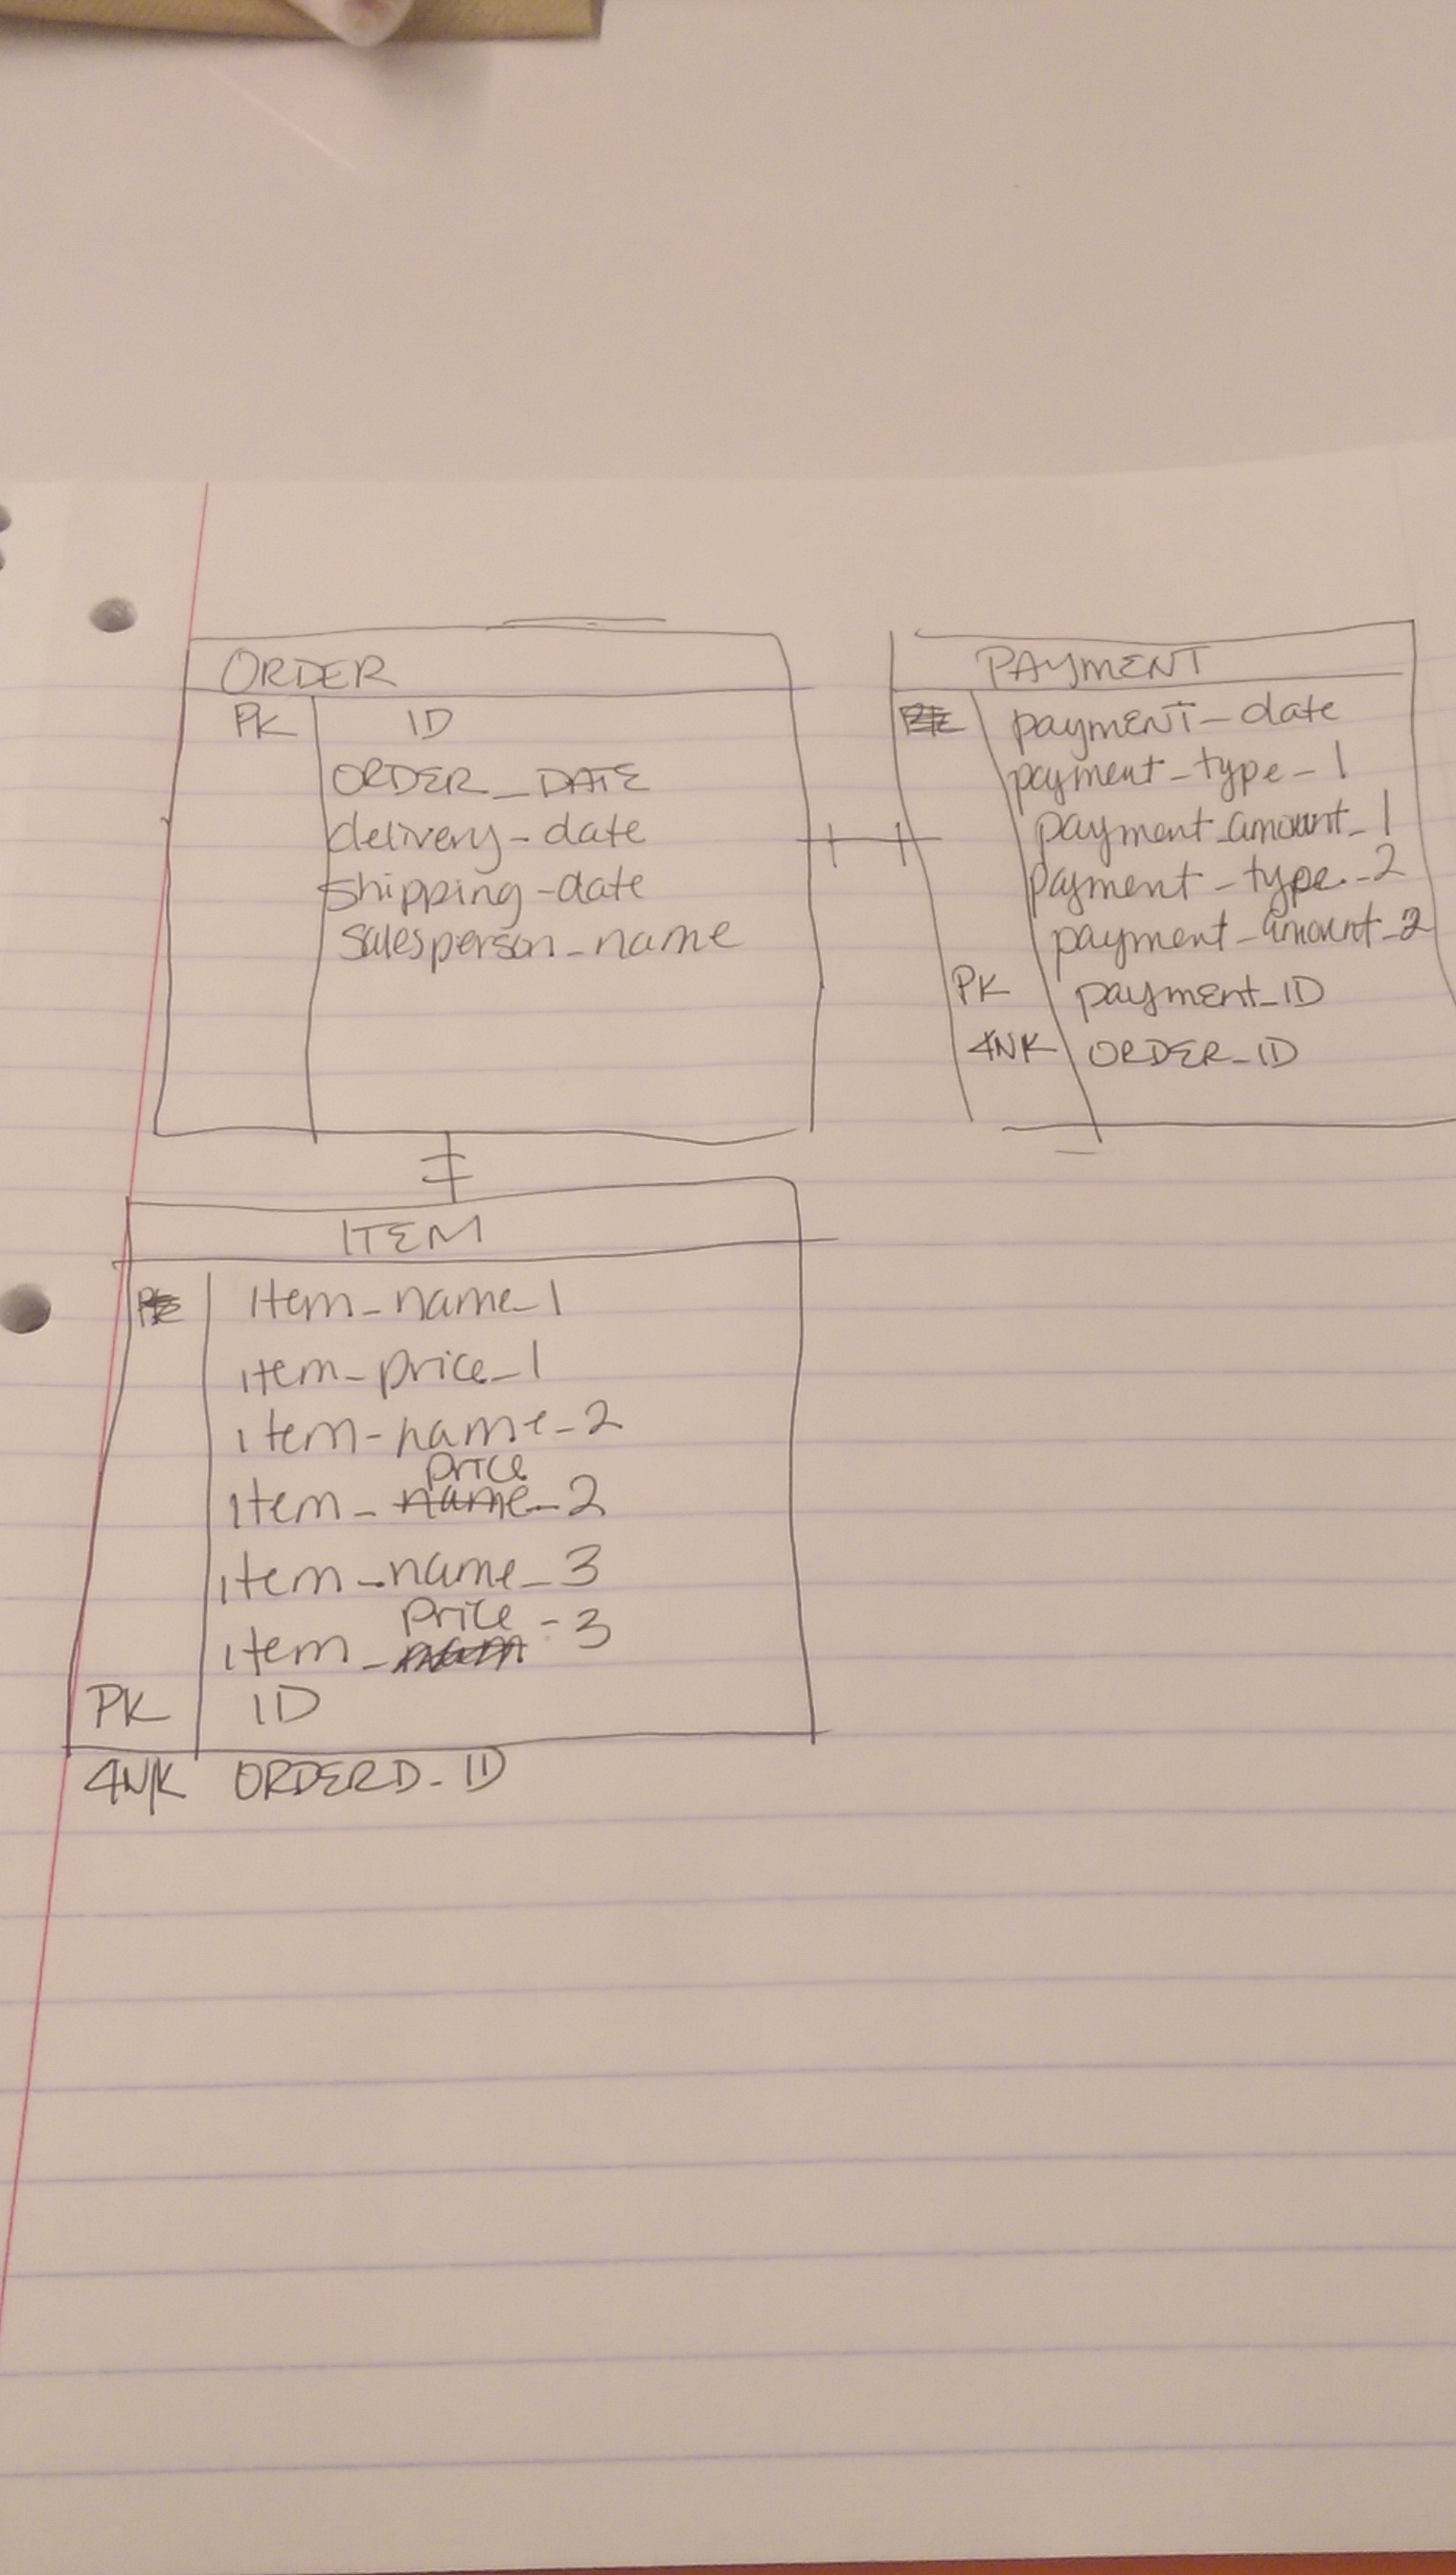 ORDER
PK ID
ORDER_DATE
delivery-date
shipping-date
salesperson_name
PAYMENT
payment-date
payment-type-1
payment_amount_1
payment-type-2
payment-amount-2
PK payment_ID
4NK ORDER_ID
ITEM
item_name_1
item_price_1
item-name-2
price
item_name_2
item_name_3
price
item_ -3
PK ID
4NK ORDERD_ID